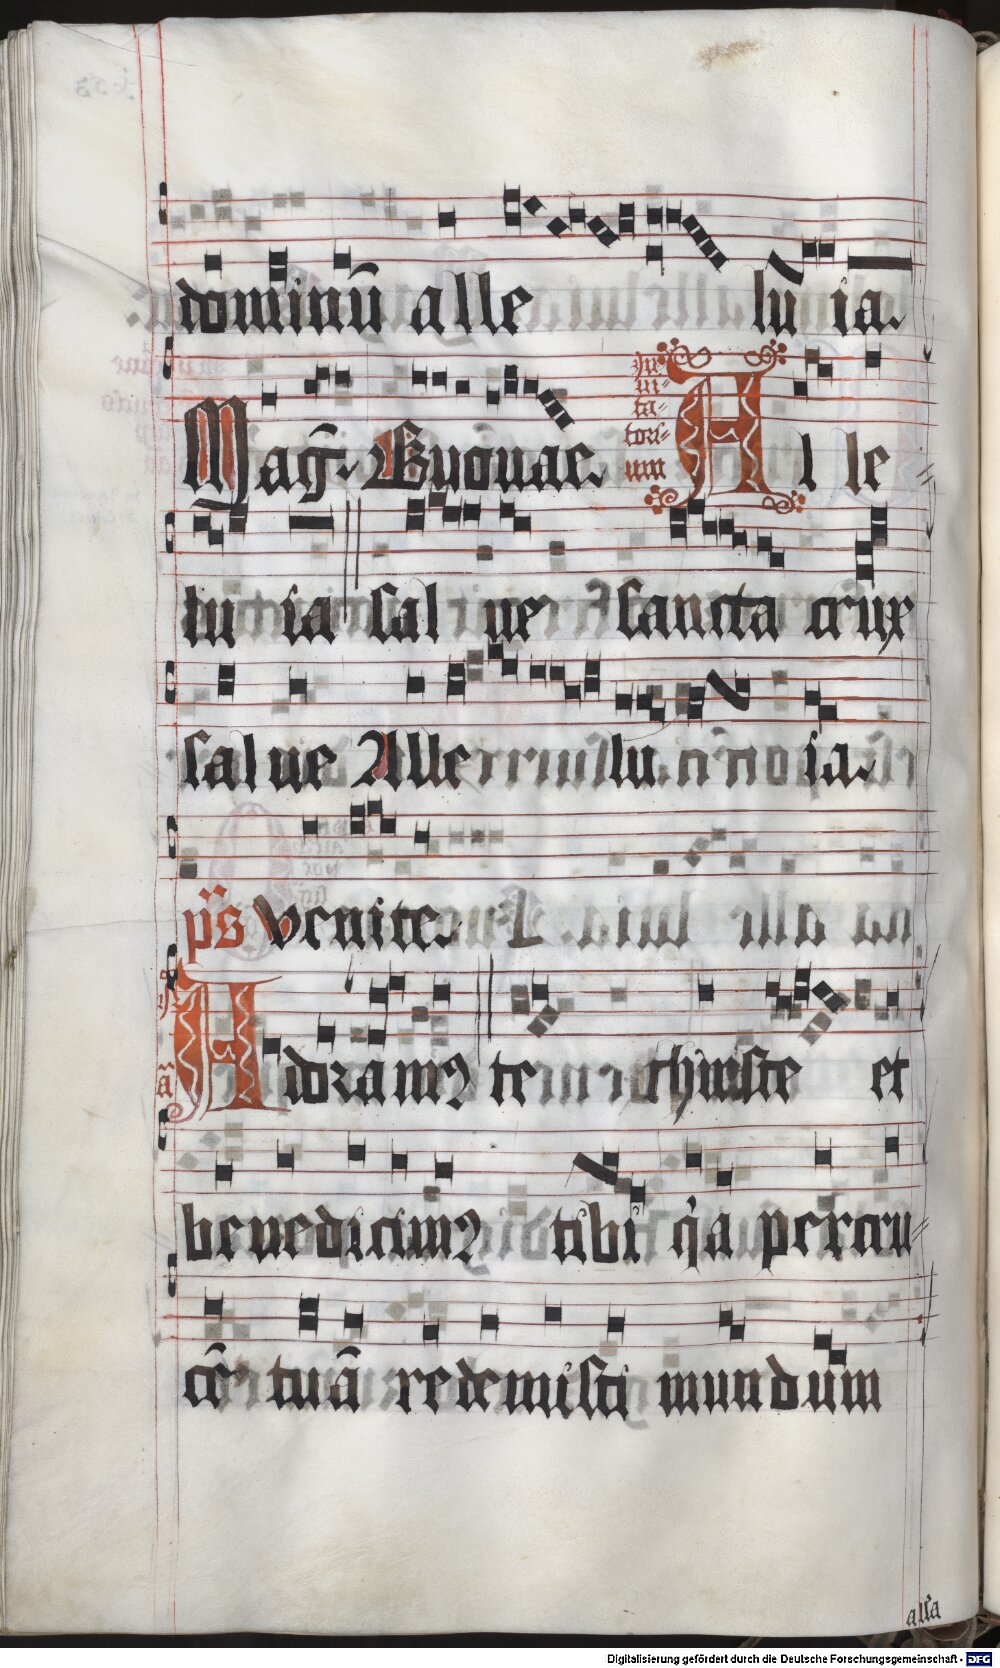 dominū alle lu ia.
In
ui-
ta-
tori-
um
Mag̅. Euouae. Al le
lu ia sal ue sancta crux
salue Alle lu ia.
p̄s venite.
ā
Adoramꝰ te christe et
benedicimꝰ tibi q̇a per cru
cē tuā redemisti mundum
alla
Digitalisierung gefördert durch die Deutsche Forschungsgemeinschaft - DFG